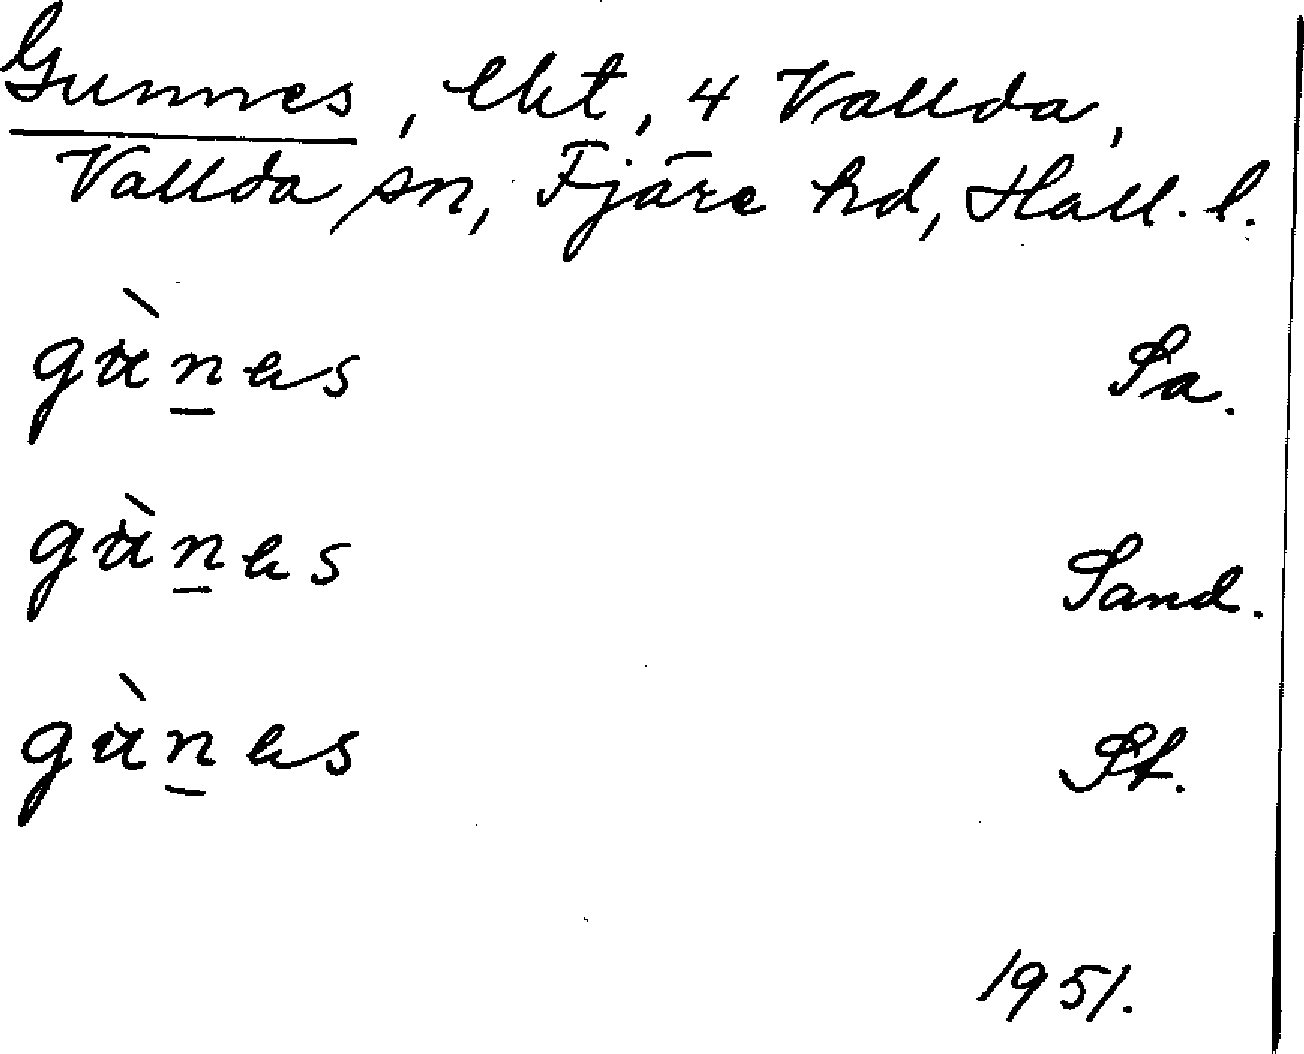 Gunnes, lht, 4 Vallda,
Vallda sn, Fjäre hd, Hall. l.
gùnas Sa.
gùnas Sand.
gùnas St.
1951.